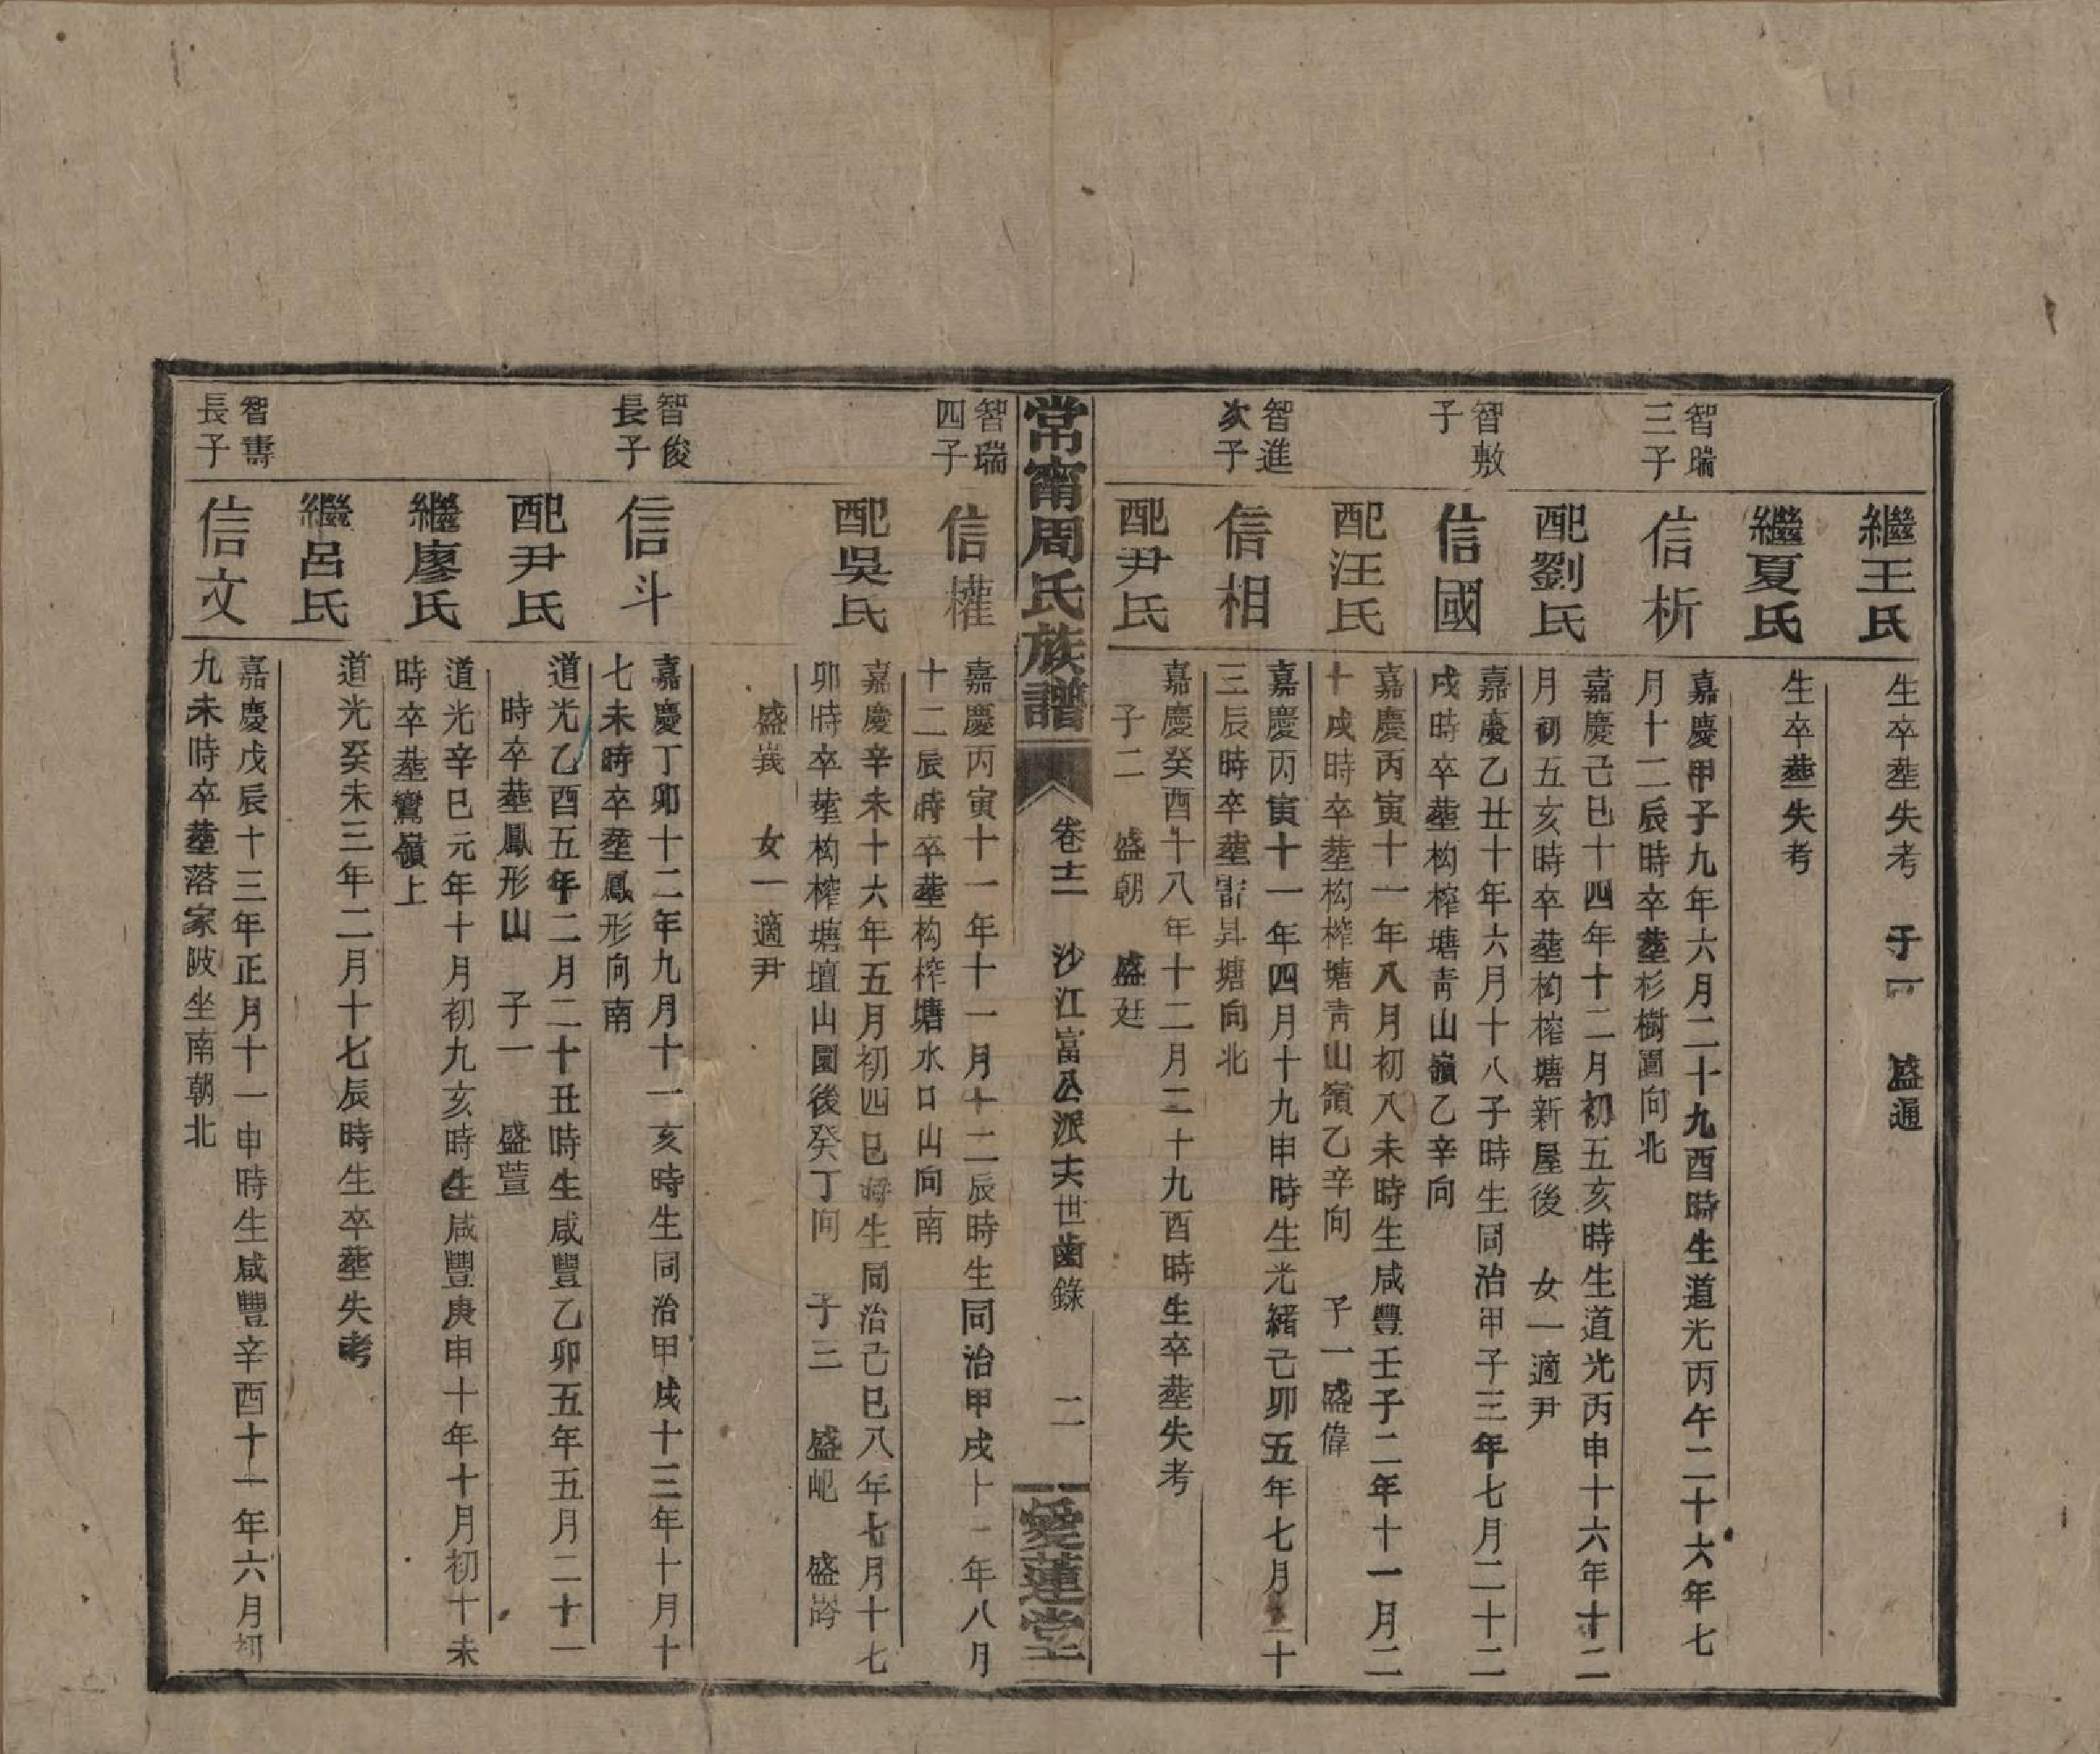 繼王氏
生卒塟失考　子一　盛通
繼夏氏
生卒塟失考
智瑞
三子
信析
嘉慶甲子九年六月二十九酉時生道光丙午二十六年七
月十二辰時卒塟杉樹園向北
配劉氏
嘉慶己巳十四年十二月初五亥時生道光丙申十六年十二
月初五亥時卒塟构榨塘新屋後　女一適尹
智敷
子
信國
嘉慶乙丑十年六月十八子時生同治甲子三年七月二十二
戌時卒塟构榨塘靑山嶺乙辛向
配汪氏
嘉慶丙寅十一年八月初八未時生咸豐壬子二年十一月二
十戌時卒塟构榨塘靑山嶺乙辛向　子一盛偉
智進
次子
信相
嘉慶丙寅十一年四月十九申時生光緒己卯五年七月二十
三辰時卒塟雷昇塘向北
配尹氏
嘉慶癸酉十八年十二月二十九酉時生卒塟失考
子二　盛朝　盛廷
常甯周氏族譜
卷十二　沙江富公派十六世齒錄　二
愛蓮堂
智瑞
四子
信權
嘉慶丙寅十一年十一月十二辰時生同治甲戌十一年八月
十二辰時卒塟构榨塘水口山向南
配吳氏
嘉慶辛未十六年五月初四巳時生同治己巳八年七月十七
卯時卒塟构榨塘壇山園後癸丁向　子三　盛岲　盛㟏
盛峩　女一適尹
智俊
長子
信斗
嘉慶丁卯十二年九月十一亥時生同治甲戌十三年十月十
七未時卒塟鳳形向南
配尹氏
道光乙酉五年二月二十丑時生咸豐乙卯五年五月二十一
時卒塟鳳形山　子一　盛萱
繼廖氏
道光辛巳元年十月初九亥時生咸豐庚申十年十月初十未
時卒塟鸞嶺上
繼呂氏
道光癸未三年二月十七辰時生卒塟失考
智壽
長子
信文
嘉慶戊辰十三年正月十一申時生咸豐辛酉十一年六月初
九未時卒塟落家陂坐南朝北